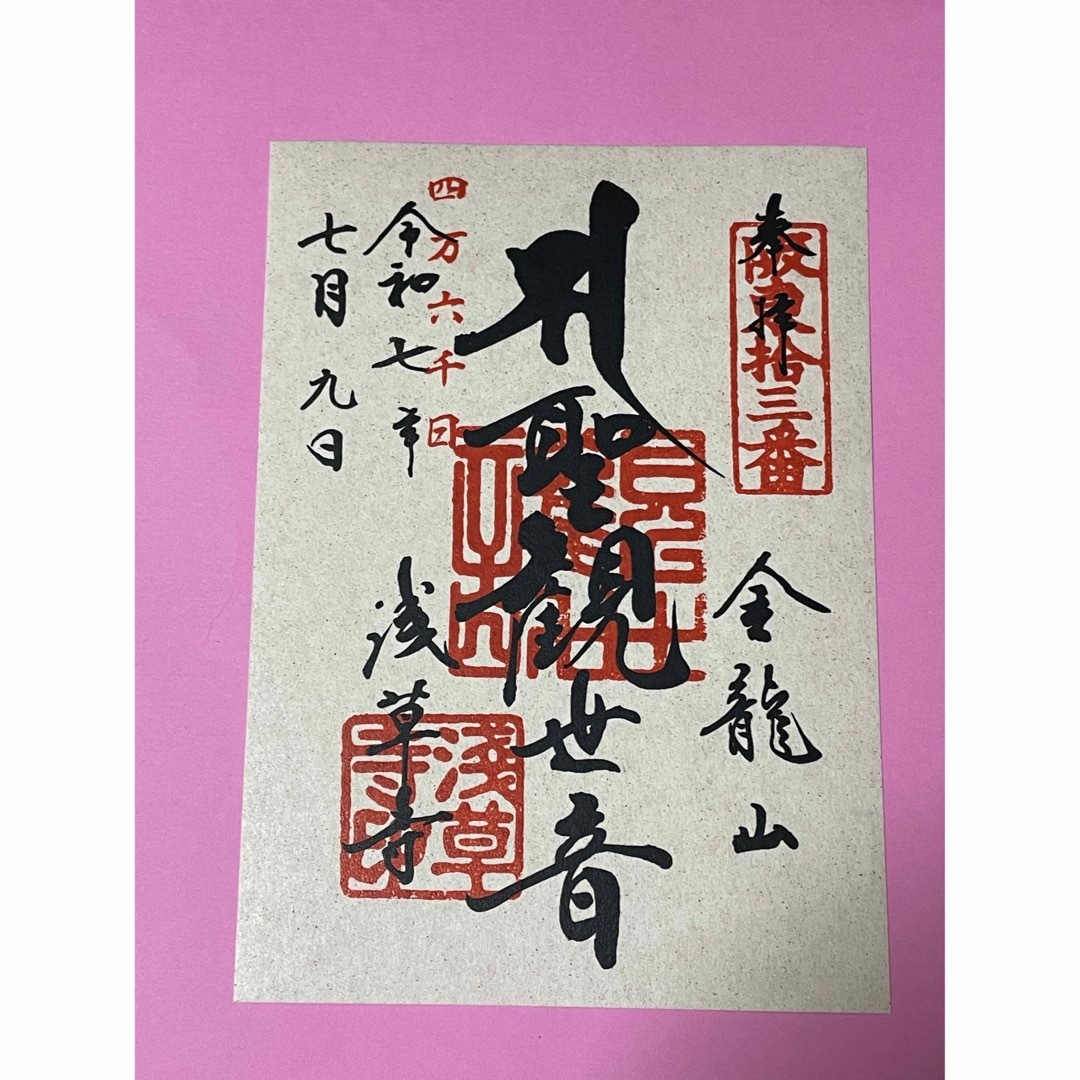 奉拝
坂東拾三番
金龍山
聖観世音
四万六千日
令和七年
七月九日
浅草寺
浅草寺印